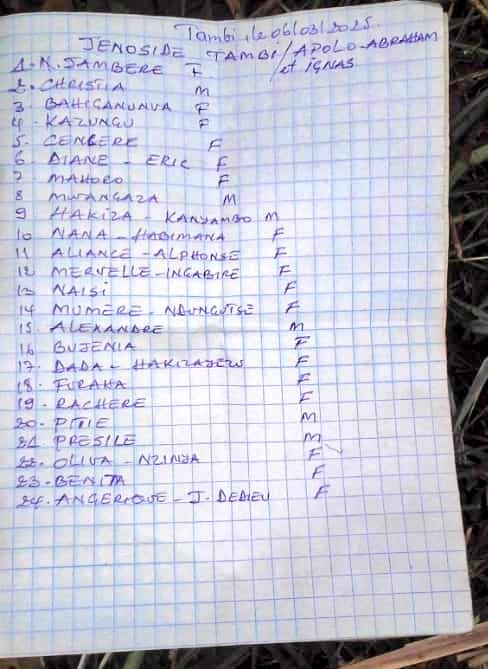 Tambi, le 06/03/2025.
JENOSIDE TAMBI/APOLO-ABRAHAM
et IGNAS
1. N. JAMBERE F
2. CHRISTIA M
3 BAHIGANUNUA F
4. KAZUNGU F
5. CENGERE F
6 DIANE - ERIC F
7 MAHORO F
8 MWANGAZA M
9 HAKIZA - KANYAMBO M
10 NANA - HABIMANA F
11 ALIANCE - ALPHONSE F
12 MERVELLE - INGABIRE F
13 NAISI F
14 MUMERE - NDUNGUTSE F
15 ALEXANDRE M
16 BUJENIA F
17. DADA - HAKIZAJEZU F
18. FURAHA F
19. RACHERE F
20. PITIE M
21. PRESILE M
22. OLIVA - NZINYA F
23. BENITA F
24. ANGERIQUE - J. DEDIEU F